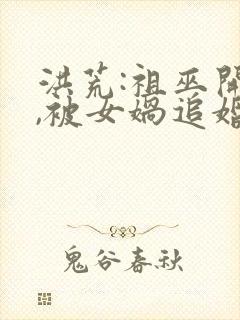 洪荒:祖巫开
,被女娲追婚
鬼谷春秋